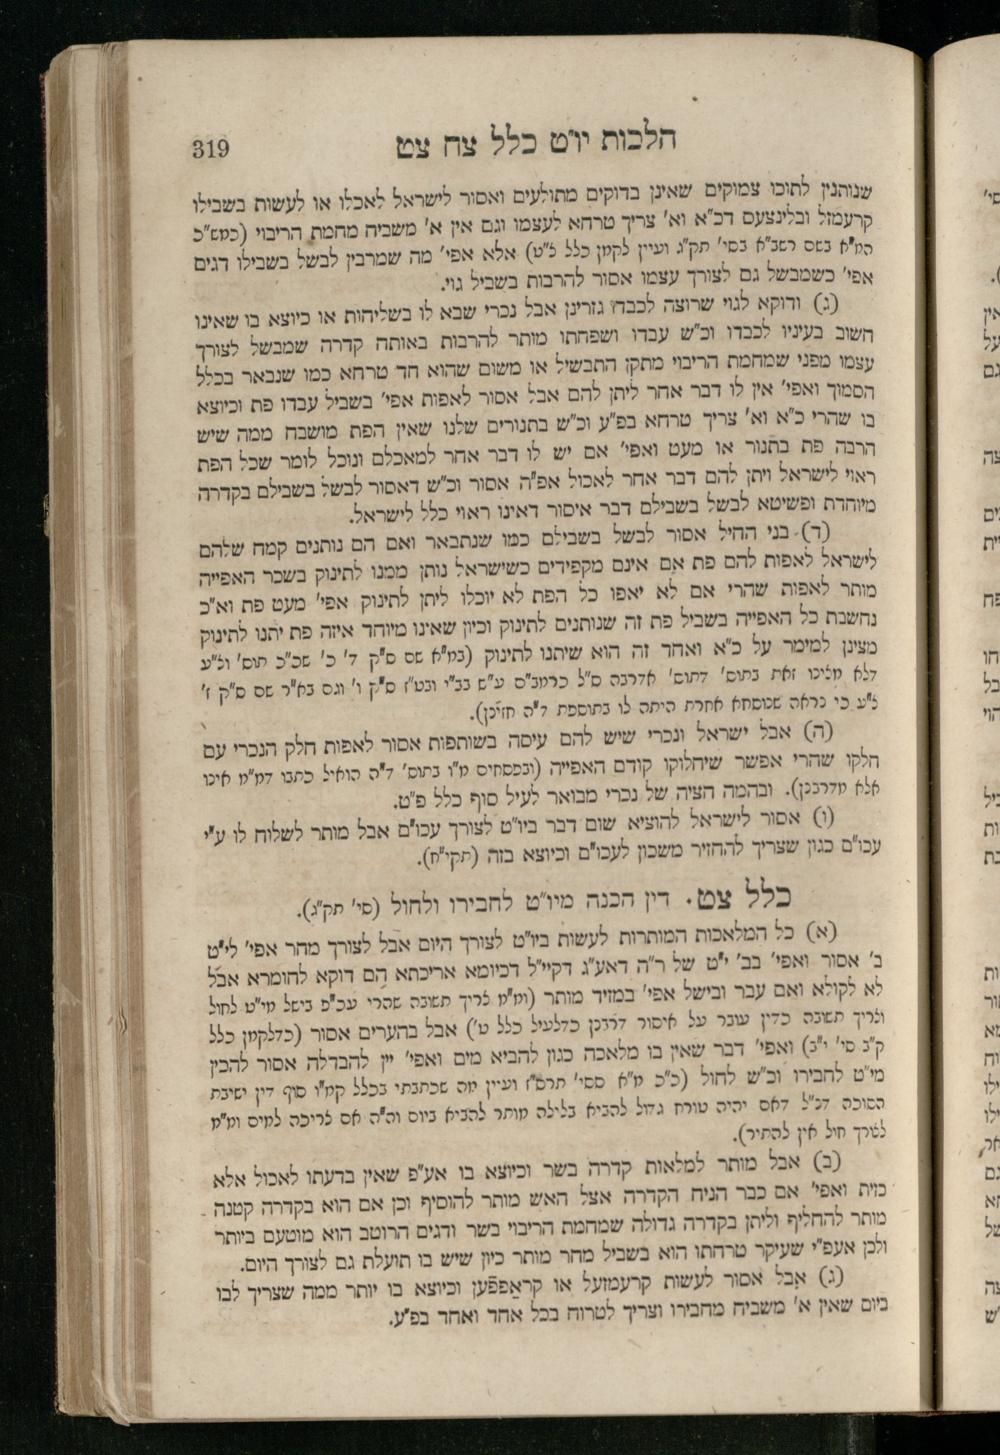 הלכות יו״ט כלל צח צט
319
שנותנין לתוכו צמוקים שאינן בדוקים מתולעים ואסור לישראל לאכלו או לעשות בשבילו
קרעמזל ובלינצעס דכ״א וא׳ צריך טרחא לעצמו וגם אין א׳ משביח מחמת הריבוי (כמש״כ
המ״א בשם רשב״א בסי׳ תק״ג ועיין לקמן כלל צ״ט) אלא אפי׳ מה שמרבין לבשל בשבילו דגים
אפי׳ כשמבשל גם לצורך עצמו אסור להרבות בשביל גוי.
(ג) ודוקא לגוי שרוצה לכבדו גזרינן אבל נכרי שבא לו בשליחות או כיוצא בו שאינו
חשוב בעיניו לכבדו וכ״ש עבדו ושפחתו מותר להרבות באותה קדרה שמבשל לצורך
עצמו מפני שמחמת הריבוי מתקן התבשיל או משום שהוא חד טרחא כמו שנבאר בכלל
הסמוך ואפי׳ אין לו דבר אחר ליתן להם אבל אסור לאפות אפי׳ בשביל עבדו פת וכיוצא
בו שהרי כ״א וא׳ צריך טרחא בפ״ע וכ״ש בתנורים שלנו שאין הפת מושבח ממה שיש
הרבה פת בתנור או מעט ואפי׳ אם יש לו דבר אחר למאכלם ונוכל לומר שכל הפת
ראוי לישראל ויתן להם דבר אחר לאכול אפ״ה אסור וכ״ש דאסור לבשל בשבילם בקדרה
מיוחדת ופשיטא לבשל בשבילם דבר איסור דאינו ראוי כלל לישראל.
(ד) בני החיל אסור לבשל בשבילם כמו שנתבאר ואם הם נותנים קמח שלהם
לישראל לאפות להם פת אם אינם מקפידים כשישראל נותן ממנו לתינוק בשכר האפייה
מותר לאפות שהרי אם לא יאפו כל הפת לא יוכלו ליתן לתינוק אפי׳ מעט פת וא״כ
נחשבת כל האפייה בשביל פת זה שנותנים לתינוק וכיון שאינו מיוחד איזה פת יתנו לתינוק
מצינן למימר על כ״א ואחד זה הוא שיתנו לתינוק (במ״א שם ס״ק ד׳ כ׳ שכ״כ תוס׳ וצ״ע
דלא מצינו זאת בתוס׳ דתוס׳ אדרבה ס״ל כרמב״ם ע״ש בב״י ובט״ז ס״ק ו׳ וגם בא״ר שם ס״ק ז׳
צ״ע כי נראה שנוסחא אחרת היתה לו בתוספת ד״ה חזינן).
(ה) אבל ישראל ונכרי שיש להם עיסה בשותפות אסור לאפות חלק הנכרי עם
חלקו שהרי אפשר שיחלוקו קודם האפייה (ובפסחים מ״ו בתוס׳ ד״ה הואיל כתבו דמ״מ אינו
אלא מדרבנן). ובהמה חציה של נכרי מבואר לעיל סוף כלל פ״ט.
(ו) אסור לישראל להוציא שום דבר ביו״ט לצורך עכו״ם אבל מותר לשלוח לו ע״י
עכו״ם כגון שצריך להחזיר משכון לעכו״ם וכיוצא בזה (תקי״ח).
כלל צט. דין הכנה מיו״ט לחבירו ולחול (סי׳ תק״ג).
(א) כל המלאכות המותרות לעשות ביו״ט לצורך היום אבל לצורך מחר אפי׳ לי״ט
ב׳ אסור ואפי׳ בב׳ י״ט של ר״ה דאע״ג דקיי״ל דכיומא אריכתא הם דוקא לחומרא אבל
לא לקולא ואם עבר ובישל אפי׳ במזיד מותר (ומ״מ צריך תשובה שהרי עכ״פ בישל מי״ט לחול
וצריך תשובה כדין עובר על איסור דרבנן כדלעיל כלל ט׳) אבל בהערים אסור (כדלקמן כלל
ק״ב סי׳ י״ב) ואפי׳ דבר שאין בו מלאכה כגון להביא מים ואפי׳ יין להבדלה אסור להכין
מי״ט לחבירו וכ״ש לחול (כ״כ מ״א ססי׳ תרס״ז ועיין מה שכתבתי בכלל קמ״ו סוף דין ישיבת
הסוכה דנ״ל דאם יהיה טורח גדול להביא בלילה מותר להביא ביום וה״ה אם צריכה למים ומ״מ
לצורך חול אין להתיר).
(ב) אבל מותר למלאות קדרה בשר וכיוצא בו אע״פ שאין בדעתו לאכול אלא
כזית ואפי׳ אם כבר הניח הקדרה אצל האש מותר להוסיף וכן אם הוא בקדרה קטנה
מותר להחליף וליתן בקדרה גדולה שמחמת הריבוי בשר ודגים הרוטב הוא מוטעם ביותר
ולכן אעפ״י שעיקר טרחתו הוא בשביל מחר מותר כיון שיש בו תועלת גם לצורך היום.
(ג) אבל אסור לעשות קרעמזעל או קראַפפֿען וכיוצא בו יותר ממה שצריך לבו
ביום שאין א׳ משביח מחבירו וצריך לטרוח בכל אחד ואחד בפ״ע.